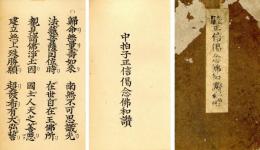 正信偈念佛和讃
中拍子正信偈念佛和讃
歸命無量壽如來　南無不可思議光
法藏菩薩因位時　在世自在王佛所
覩見諸佛淨土因　國土人天之善惡
建立無上殊勝願　超發希有大弘誓